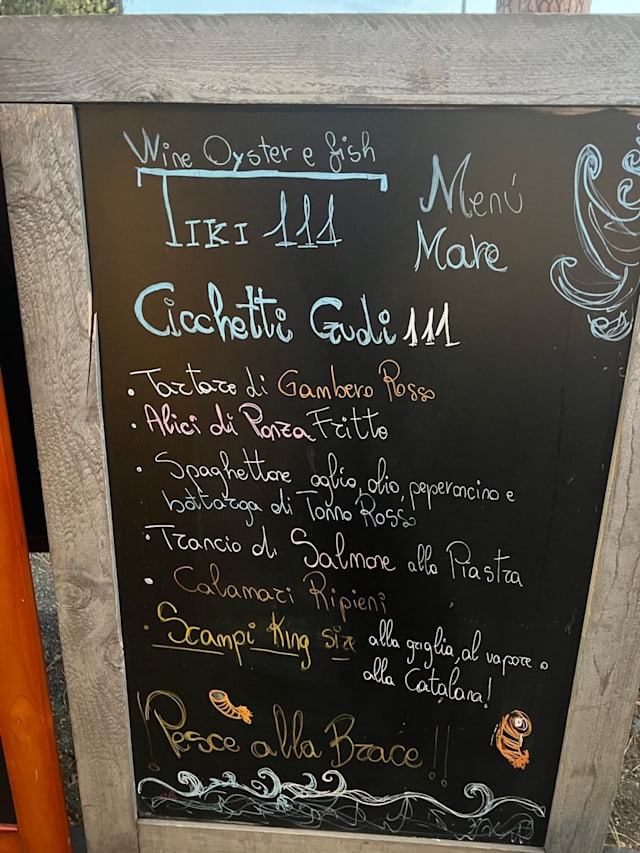 Wine Oyster e fish
TIKI 111
Menú
Mare
Cicchetti Gudi 111
• Tartare di Gambero Rosso
• Alici di Ponza Fritte
• Spaghettone aglio, olio, peperoncino e
bottarga di Tonno Rosso
• Trancio di Salmone alla Piastra
• Calamari Ripieni
• Scampi King size alla griglia, al vapore o
alla Catalana!
Pesce alla Brace!!